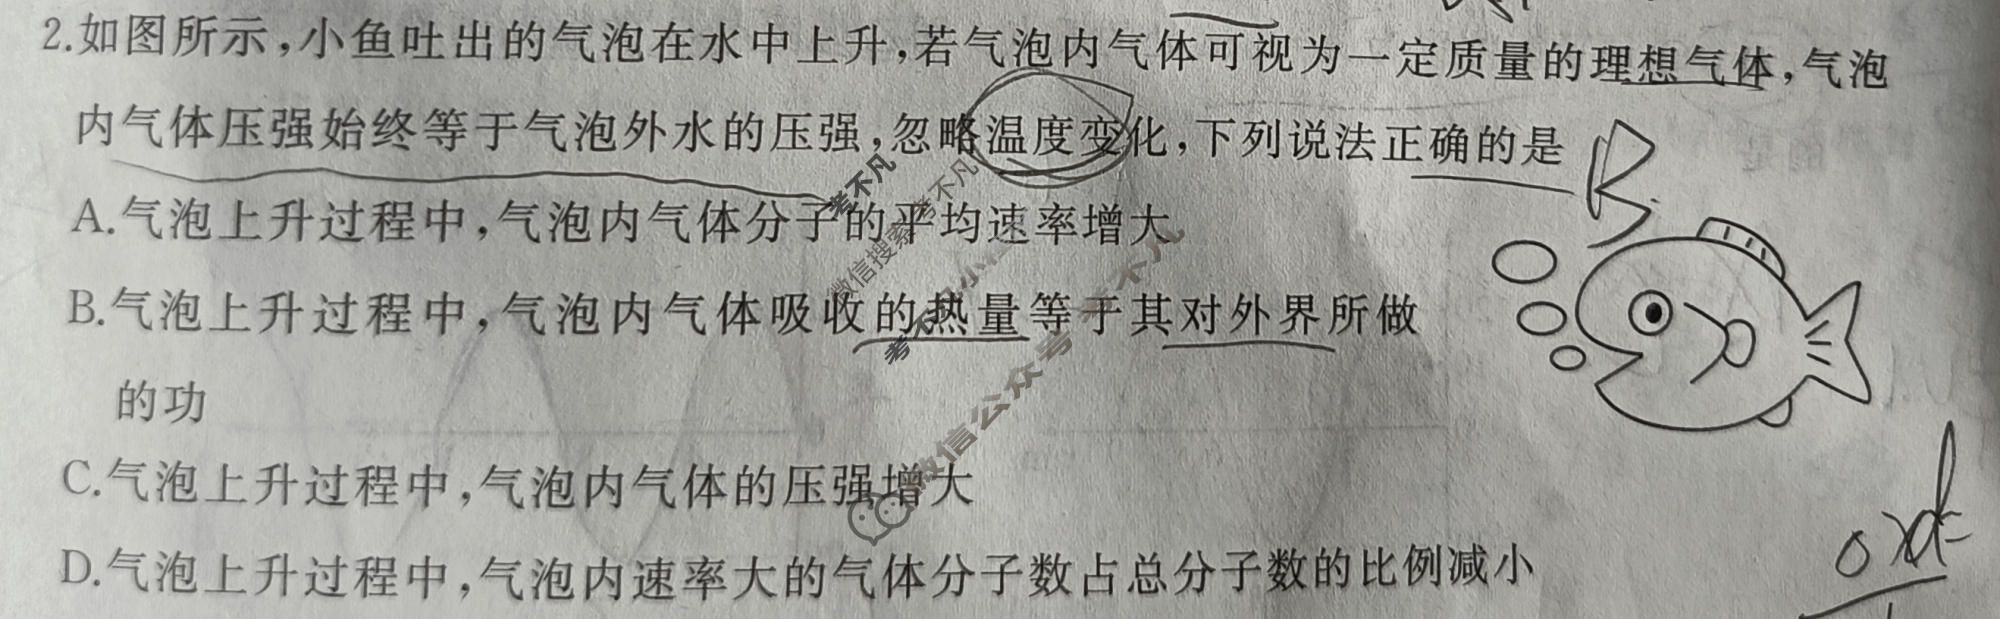 2.如图所示,小鱼吐出的气泡在水中上升,若气泡内气体可视为一定质量的理想气体,气泡
内气体压强始终等于气泡外水的压强,忽略温度变化,下列说法正确的是
A.气泡上升过程中,气泡内气体分子的平均速率增大
B.气泡上升过程中,气泡内气体吸收的热量等于其对外界所做
的功
C.气泡上升过程中,气泡内气体的压强增大
D.气泡上升过程中,气泡内速率大的气体分子数占总分子数的比例减小
考不凡
微信搜索 考不凡
微信公众号 考不凡